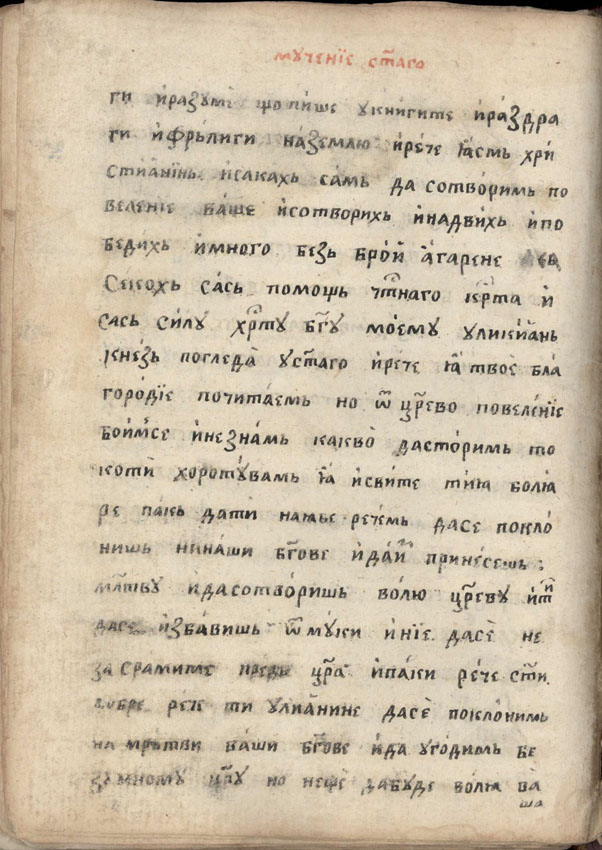 мꙋченїе ст҃аго
ги и҆разꙋме що пише ꙋ книгите и҆раздра
ги и҆фрьлиги наземлю и҆рече ꙗ҆смь хри
стиа҆нинь и҆сакахь самь да сотворимь по
веление ваше и҆сотворихь и҆надвихь и҆по
бедихь и҆много безь брой а҆гарене
секохь сась помощь чт҃наго кр҃та и҆
сась силꙋ хр҃тꙋ бг҃ꙋ моемꙋ ꙋликиꙗнь
кнезь погледа ꙋст҃аго и҆рече ꙗ҆ твое бла
городїе почитаемь но ѿ цр҃ево повеленїе
боимсе и҆незнамь какво дасторимь то
коти хоротꙋвамь ꙗ҆ и҆свите тиꙗ болѧ
ре пакь дати нашье речемь дасе покло
нишь нинаши бг҃ове и҆даим принесешь
мл҃твꙋ и҆дасотворишь волю цр҃евꙋ и҆ти
дасе и҆збавишь ѿ мꙋки и҆нїе дасе не
засрамите предь цр҃а и҆паки рече ст҃и
добре рече ти ꙋлиа҆нине дасе поклонимь
на мрьтви ваши бг҃ове и҆да ꙋгодимь бе
зꙋмномꙋ цр҃ꙋ но неще дабꙋде волꙗ ва
ша